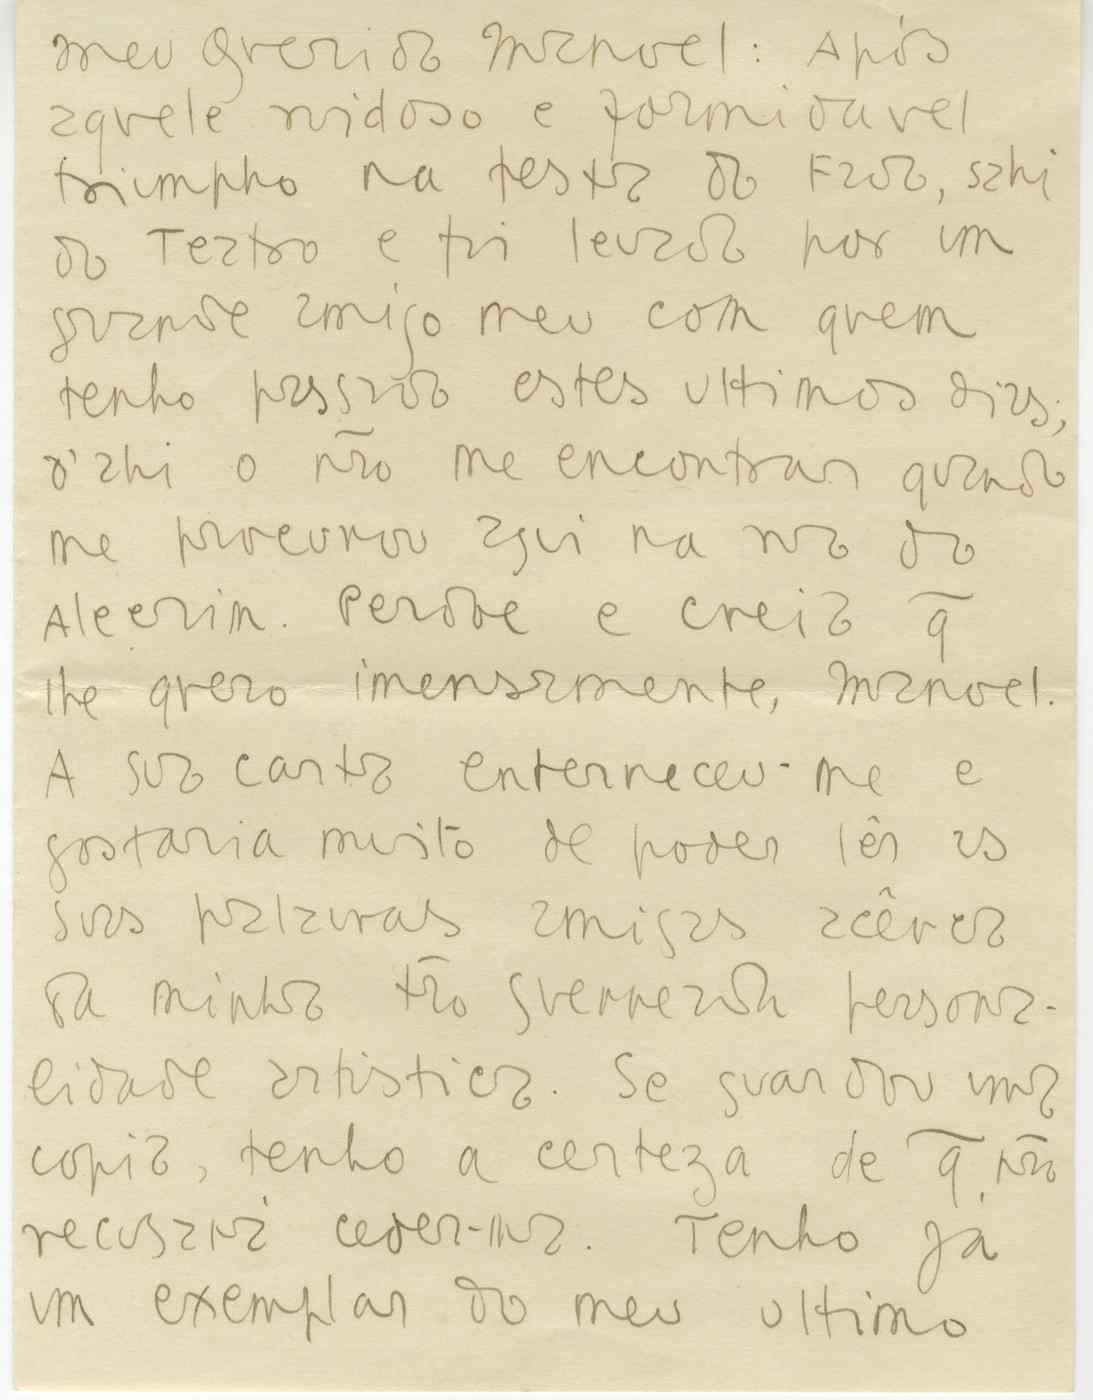 Meu Querido Manoel: Após
aquele ruidoso e formidavel
triumpho na festa do Fado, sahi
do Teatro e fui levado por um
grande amigo meu com quem
tenho passado estes ultimos dias;
d'ahi o não me encontrar quando
me procurou aqui na rua do
Alecrim. Perdoe e creia q̃
lhe quero imensamente, Manoel.
A sua carta enterneceu-me e
gostaria muito de poder lêr as
suas palavras amigas acêrca
da minha tão guerreada persona-
lidade artistica. Se guardou uma
copia, tenho a certeza de q̃ não
recusará ceder-ma. Tenho já
um exemplar do meu ultimo